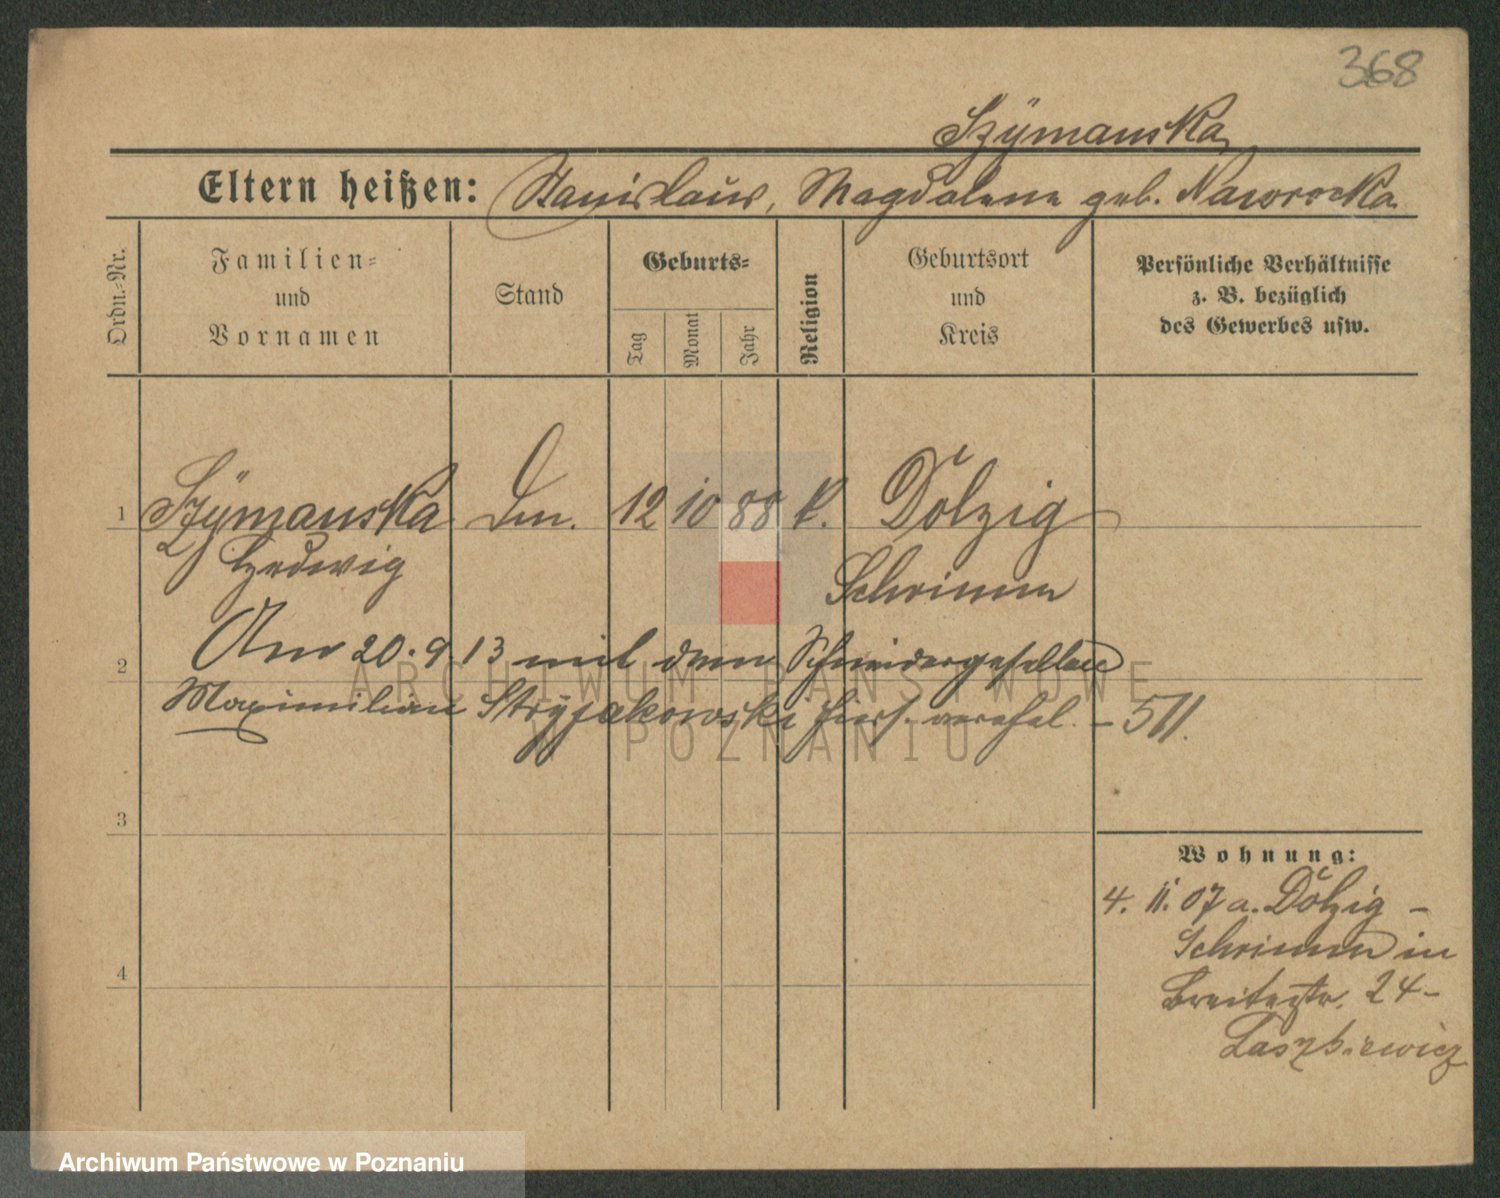 368
Szÿmanska
Eltern heißen: Stanislaus, Magdalena geb. Nawrocka
Ordn.-Nr.
Familien- und Vornamen
Stand
Geburts-
Tag
Monat
Jahr
Religion
Geburtsort und Kreis
Persönliche Verhältnisse
z. B. bezüglich
des Gewerbes usw.
1 Szÿmanska 12 10 88 k. Dolzig
Hedwig Schrimm
Am 20.9.13 mit dem Schneidergesellen
2
Maximilian Stryjakowski hiers. verehel. – 511.
3
Wohnung:
4. 11. 07 a. Dolzig –
Schrimm in
4
Breitestr. 24 –
ARCHIWUM PAŃSTWOWE
W POZNANIU
Archiwum Państwowe w Poznaniu